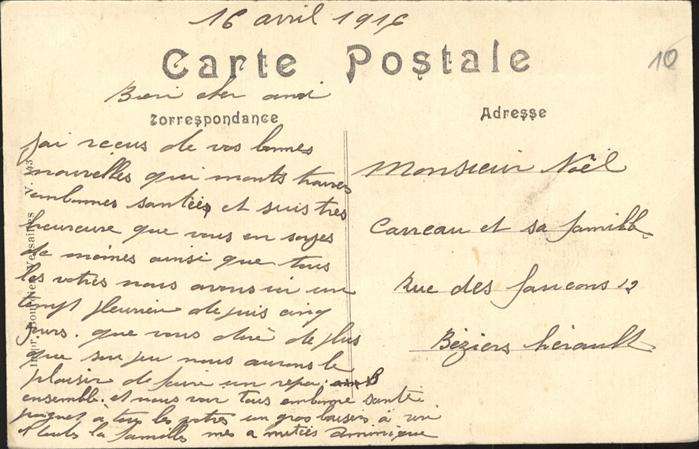 16 avril 1916
Carte Postale
10
Bien cher ami
Correspondance
j'ai recus de vos bonnes
nouvelles qui monts trouves
enbonnes santées et suis tres
heureure que vous en soyes
de moines ainsi que tous
les votres nous avons ici un
tempt pleuvien depuis cinq
jours. que vous diré de plus
que sou peu nous aurons le
plaisir de faire un repa
ensemble. et nous voir tous enbonne santé
joignes à tous les votres un gros baisers à
toute la familles
Adresse
Monsieur Noël
Carreau et sa famille
Rue des faucons 12
Béziers hérault